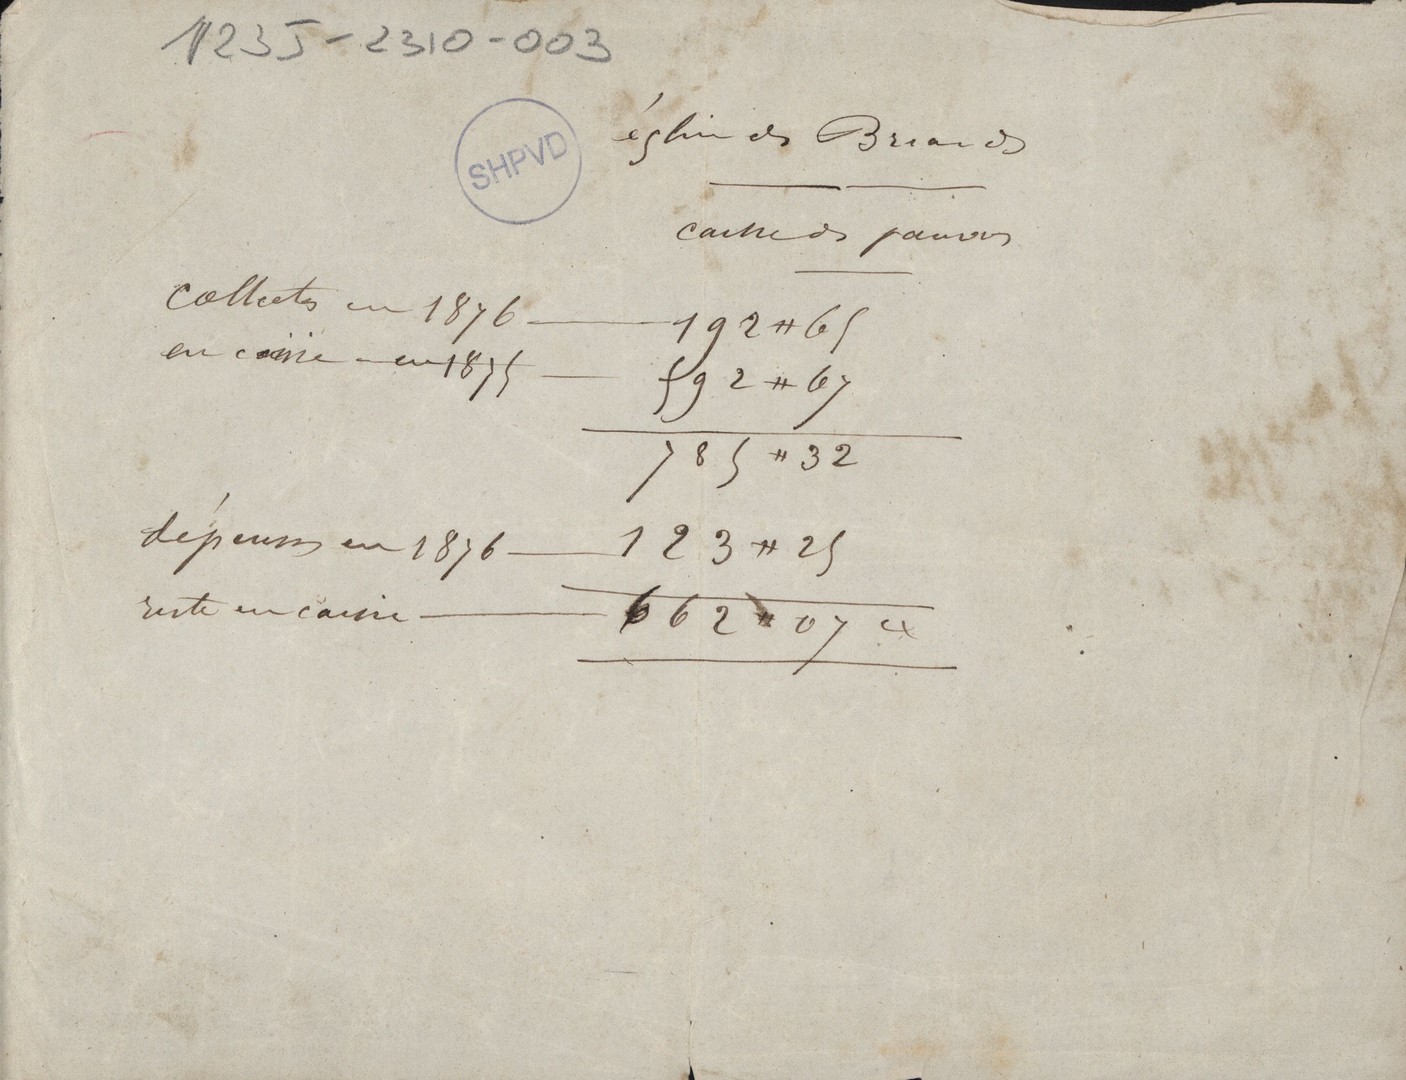 123J-2310-003
SHPVD
église des Briands
caisse des pauvres
collectes en 1876 — 192 # 65
en caisse en 1875 — 592 # 67
785 # 32
dépenses en 1876 — 123 # 25
reste en caisse — 662 # 07